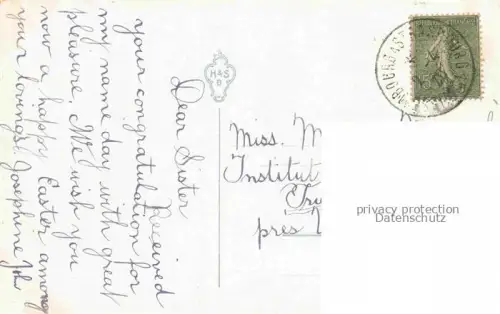 Dear Sister
Received
your congratulation for
my name day with great
pleasure. We wish you
now a happy Easter among
your lovings. Josephine
Miss. M
Institut
près
H&S
B
privacy protection
Datenschutz